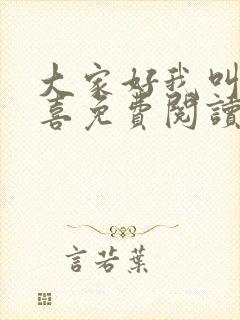 大家好我叫
喜免費閱讀
言若葉